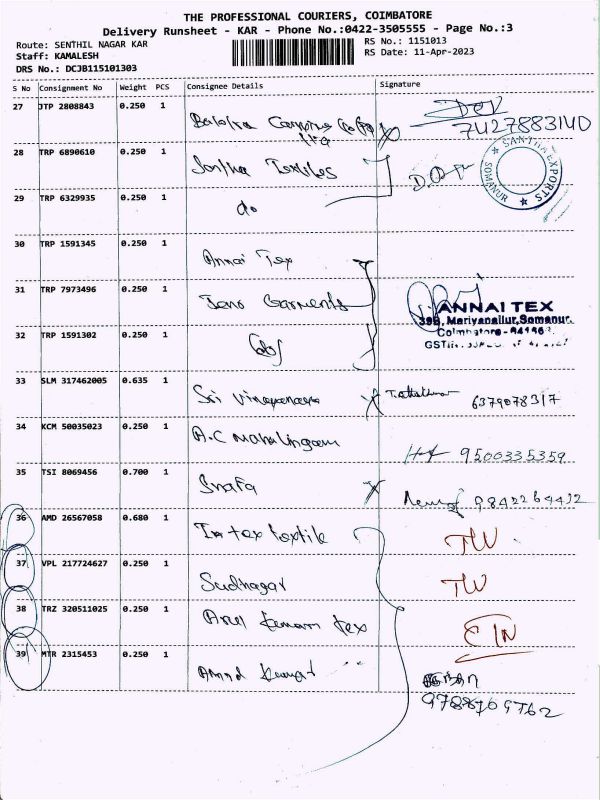 THE PROFESSIONAL COURIERS, COIMBATORE
Delivery Runsheet - KAR - Phone No.:0422-3505555 - Page No.:3
Route: SENTHIL NAGAR KAR
RS No.: 1151013
Staff: KAMALESH
RS Date: 11-Apr-2023
DRS No.: DCJB115101303
S No Consignment No Weight PCS Consignee Details Signature
27 JTP 2808843 0.250 1
7427883140
28 TRP 6890610 0.250 1 Textiles
SANTHA EXPORTS SOMANUR
29 TRP 6329935 0.250 1 do
30 TRP 1591345 0.250 1 Annai Tex
31 TRP 7973496 0.250 1 Jeno Garments
ANNAI TEX
39B, Mariyanallur, Somanur,
32 TRP 1591302 0.250 1
Coimbatore
GSTIN
33 SLM 317462005 0.635 1 Sri 6379078317
34 KCM 50035023 0.250 1 A.C Mahalingam 9500335359
35 TSI 8069456 0.700 1 9842264412
36 AMD 26567058 0.680 1 Intex textile
37 VPL 217724627 0.250 1 Sudhagar
38 TRZ 320511025 0.250 1 Arul tex
39 MTR 2315453 0.250 1
9788709762